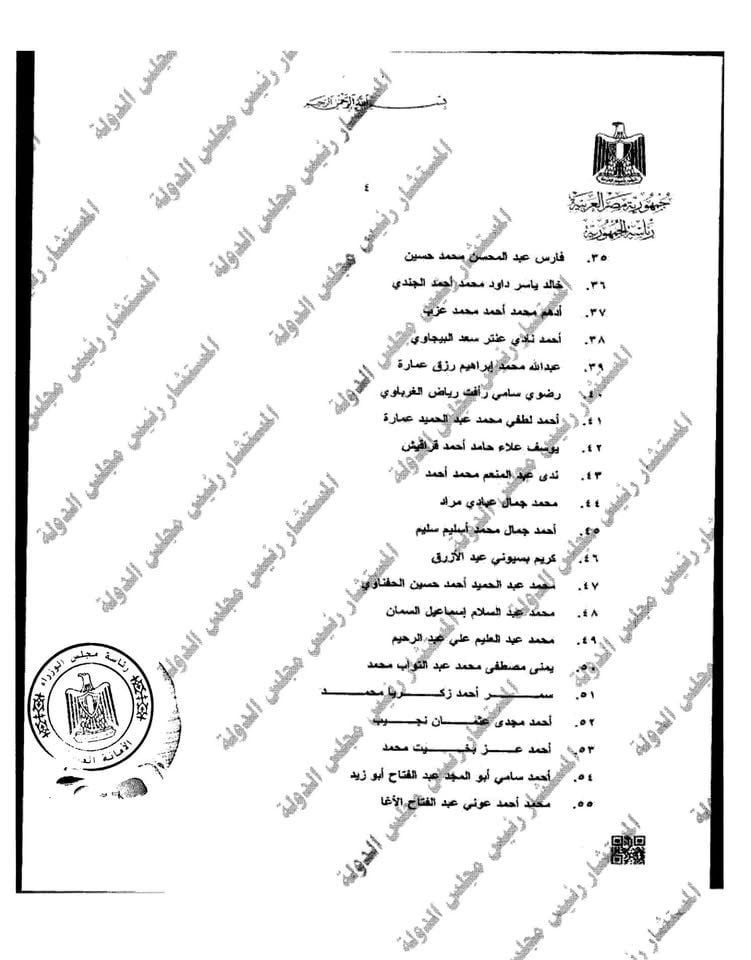 بسم الله الرحمن الرحيم
جمهورية مصر العربية
رئاسة الجمهورية
٤
٣٥. فارس عبد المحسن محمد حسين
٣٦. خالد ياسر داود محمد أحمد الجندي
٣٧. أدهم محمد أحمد محمد عزب
٣٨. أحمد نادي عنتر سعد البيجاوي
٣٩. عبدالله محمد إبراهيم رزق عمارة
٤٠. رضوي سامي رأفت رياض الغرباوي
٤١. أحمد لطفي محمد عبد الحميد عمارة
٤٢. يوسف علاء حامد أحمد قراقيش
٤٣. ندى عبد المنعم محمد أحمد
٤٤. محمد جمال عبادي مراد
٤٥. أحمد جمال محمد أسليم سليم
٤٦. كريم بسيوني عيد الأزرق
٤٧. محمد عبد الحميد أحمد حسين الحفناوي
٤٨. محمد عبد السلام إسماعيل السمان
٤٩. محمد عبد العليم علي عبد الرحيم
٥٠. يمنى مصطفى محمد عبد التواب محمد
٥١. سمـــر أحمد زكـــريا محمـــد
٥٢. أحمد مجدى عثمـــان نجـــيب
٥٣. أحمد عـــز بخـــيت محمد
٥٤. أحمد سامي أبو المجد عبد الفتاح أبو زيد
٥٥. محمد أحمد عوني عبد الفتاح الأغا
رئاسة مجلس الوزراء
الأمانة
المستشار رئيس مجلس الدولة